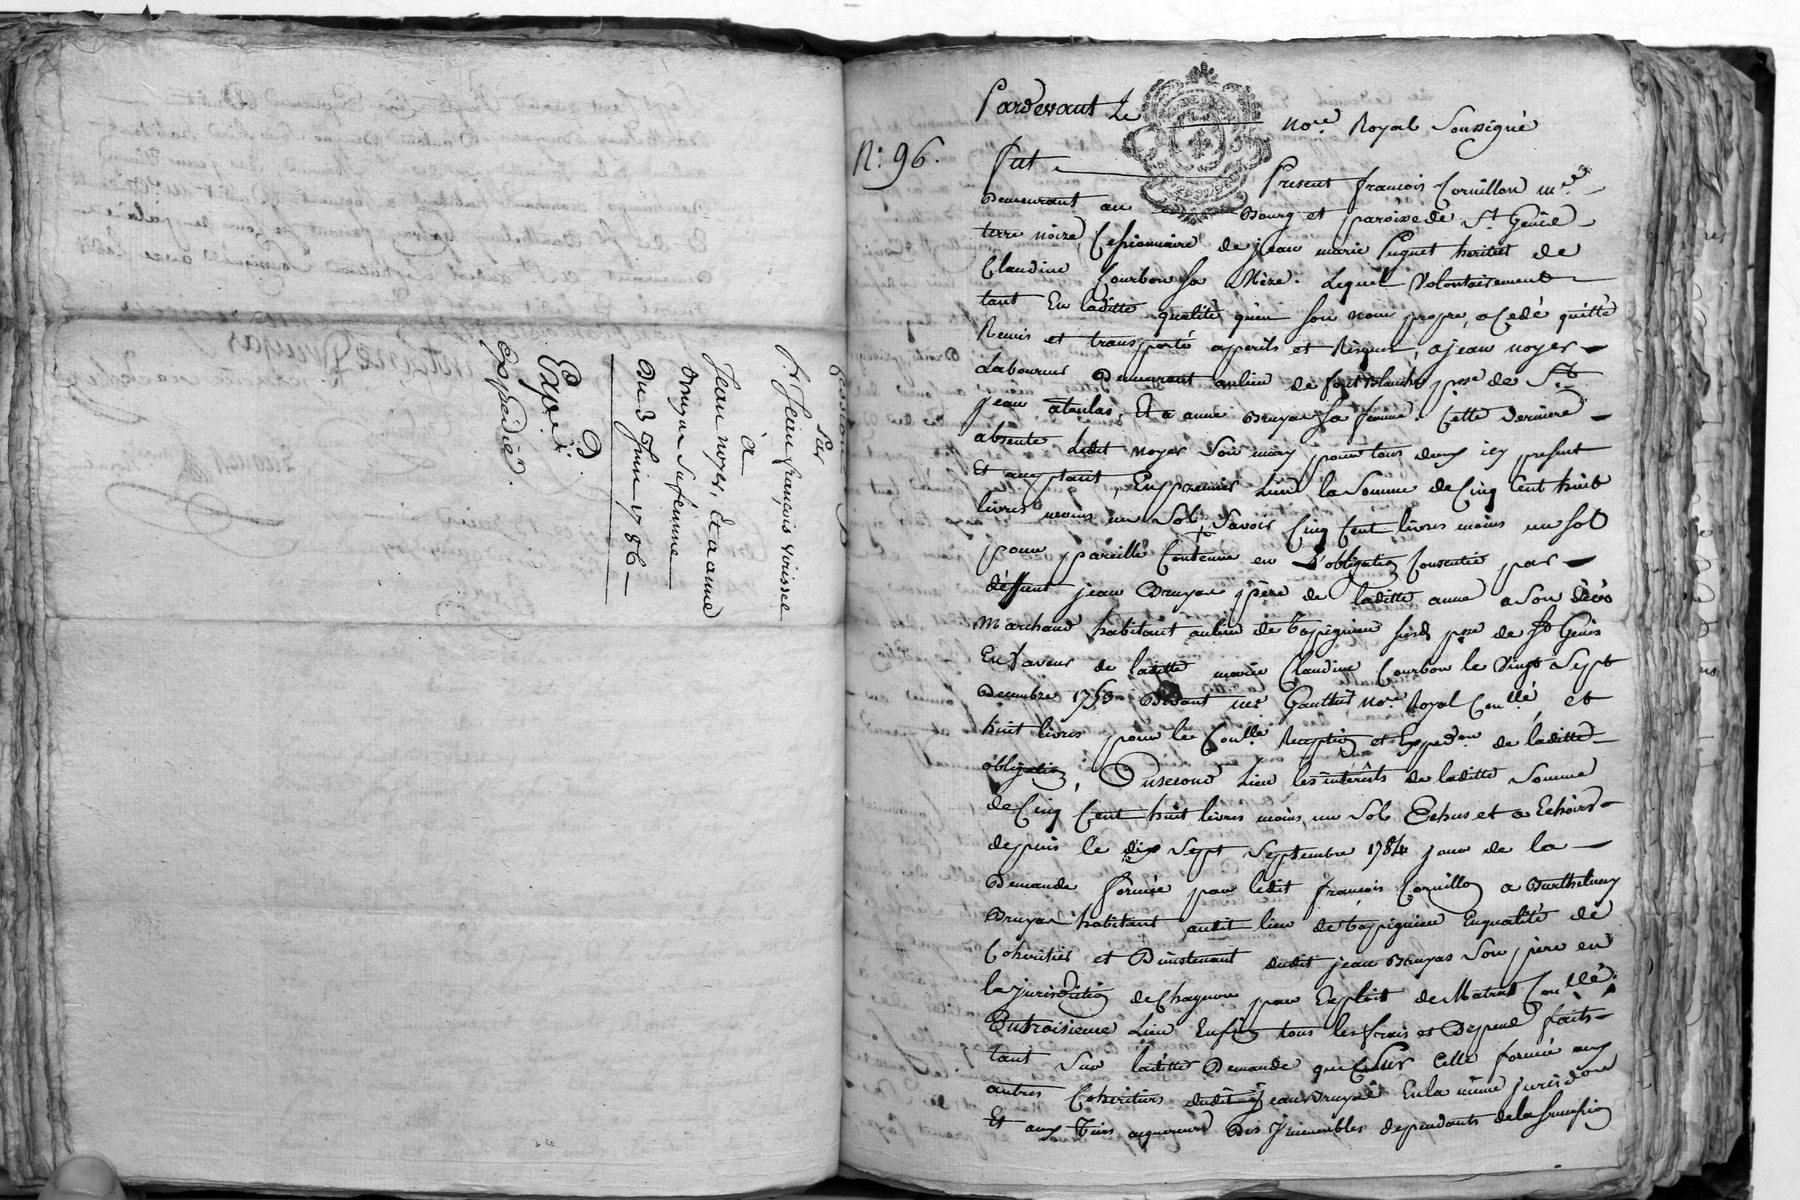 Cession
Par
Sr Jean françois vrissel
à
Jean noyer, et a anne
druyas sa femme
du 3 Juin 1786
D.
Exp.é
Expédié.
N.° 96.
Pardevant Le no.re Royal Soussigné
fut Present françois Cornillon m.re
Demeurant au Bourg et paroisse de St Genis
terre noire, Cessionnaire de jean marie Puguet heritier de
Claudine Courbon sa Mere. Lequel Volontairement
tant En laditte qualité qu'en son nom propre, a Cedé quitté
Remis et transporté a perils et Risques, a jean noyer
Laboureur Demeurant au lieu de font blanche psse de St
jean a toulas, Et a anne Druyas sa femme. Cette derniere
absente Ledit noyer Son mary pour tous deux icy present
Et acceptant, En premier Lieu la Somme de Cinq Cent huit
livres moins un Sol, Savoir Cinq Cent livres moins un sol
pour pareille Contenue en L'obligation Consentie par
déffunt jean Druyas père de laditte anne a Son décés
Marchand habitant au lieu de tapignieu susd. psse de St Genis
En faveur de laditte marie Claudine Courbon le Vingt Sept
Decembre 1753 Devant me Gaultier no.re Royal Con.llé et
huit livres pour les Con.lle Reception et Exped.on de laditte
obligation, Dusecond Lieu les intérêts de laditte Somme
de Cinq Cent huit livres moins un Sol Echus et a Echoir
depuis le dix Sept Septembre 1784 jour de la
Demande formée par ledit françois Cornillon a Barthelemy
Druyas habitant audit lieu de tapignieu En qualité de
Coheritier et Bientenant dudit jean Druyas Son pere en
la jurisdiction de Chagnon par Exploit de Matrat Con.llé,
En troisieme Lieu Enfin tous les frais et Depens faits
tant Sur laditte Demande que Sur Celle formée aux
autres Coheritiers dudit jean Druyas En la même jurisdon
Et aux Tiers acquereurs Des Immeubles dependants de la Succession